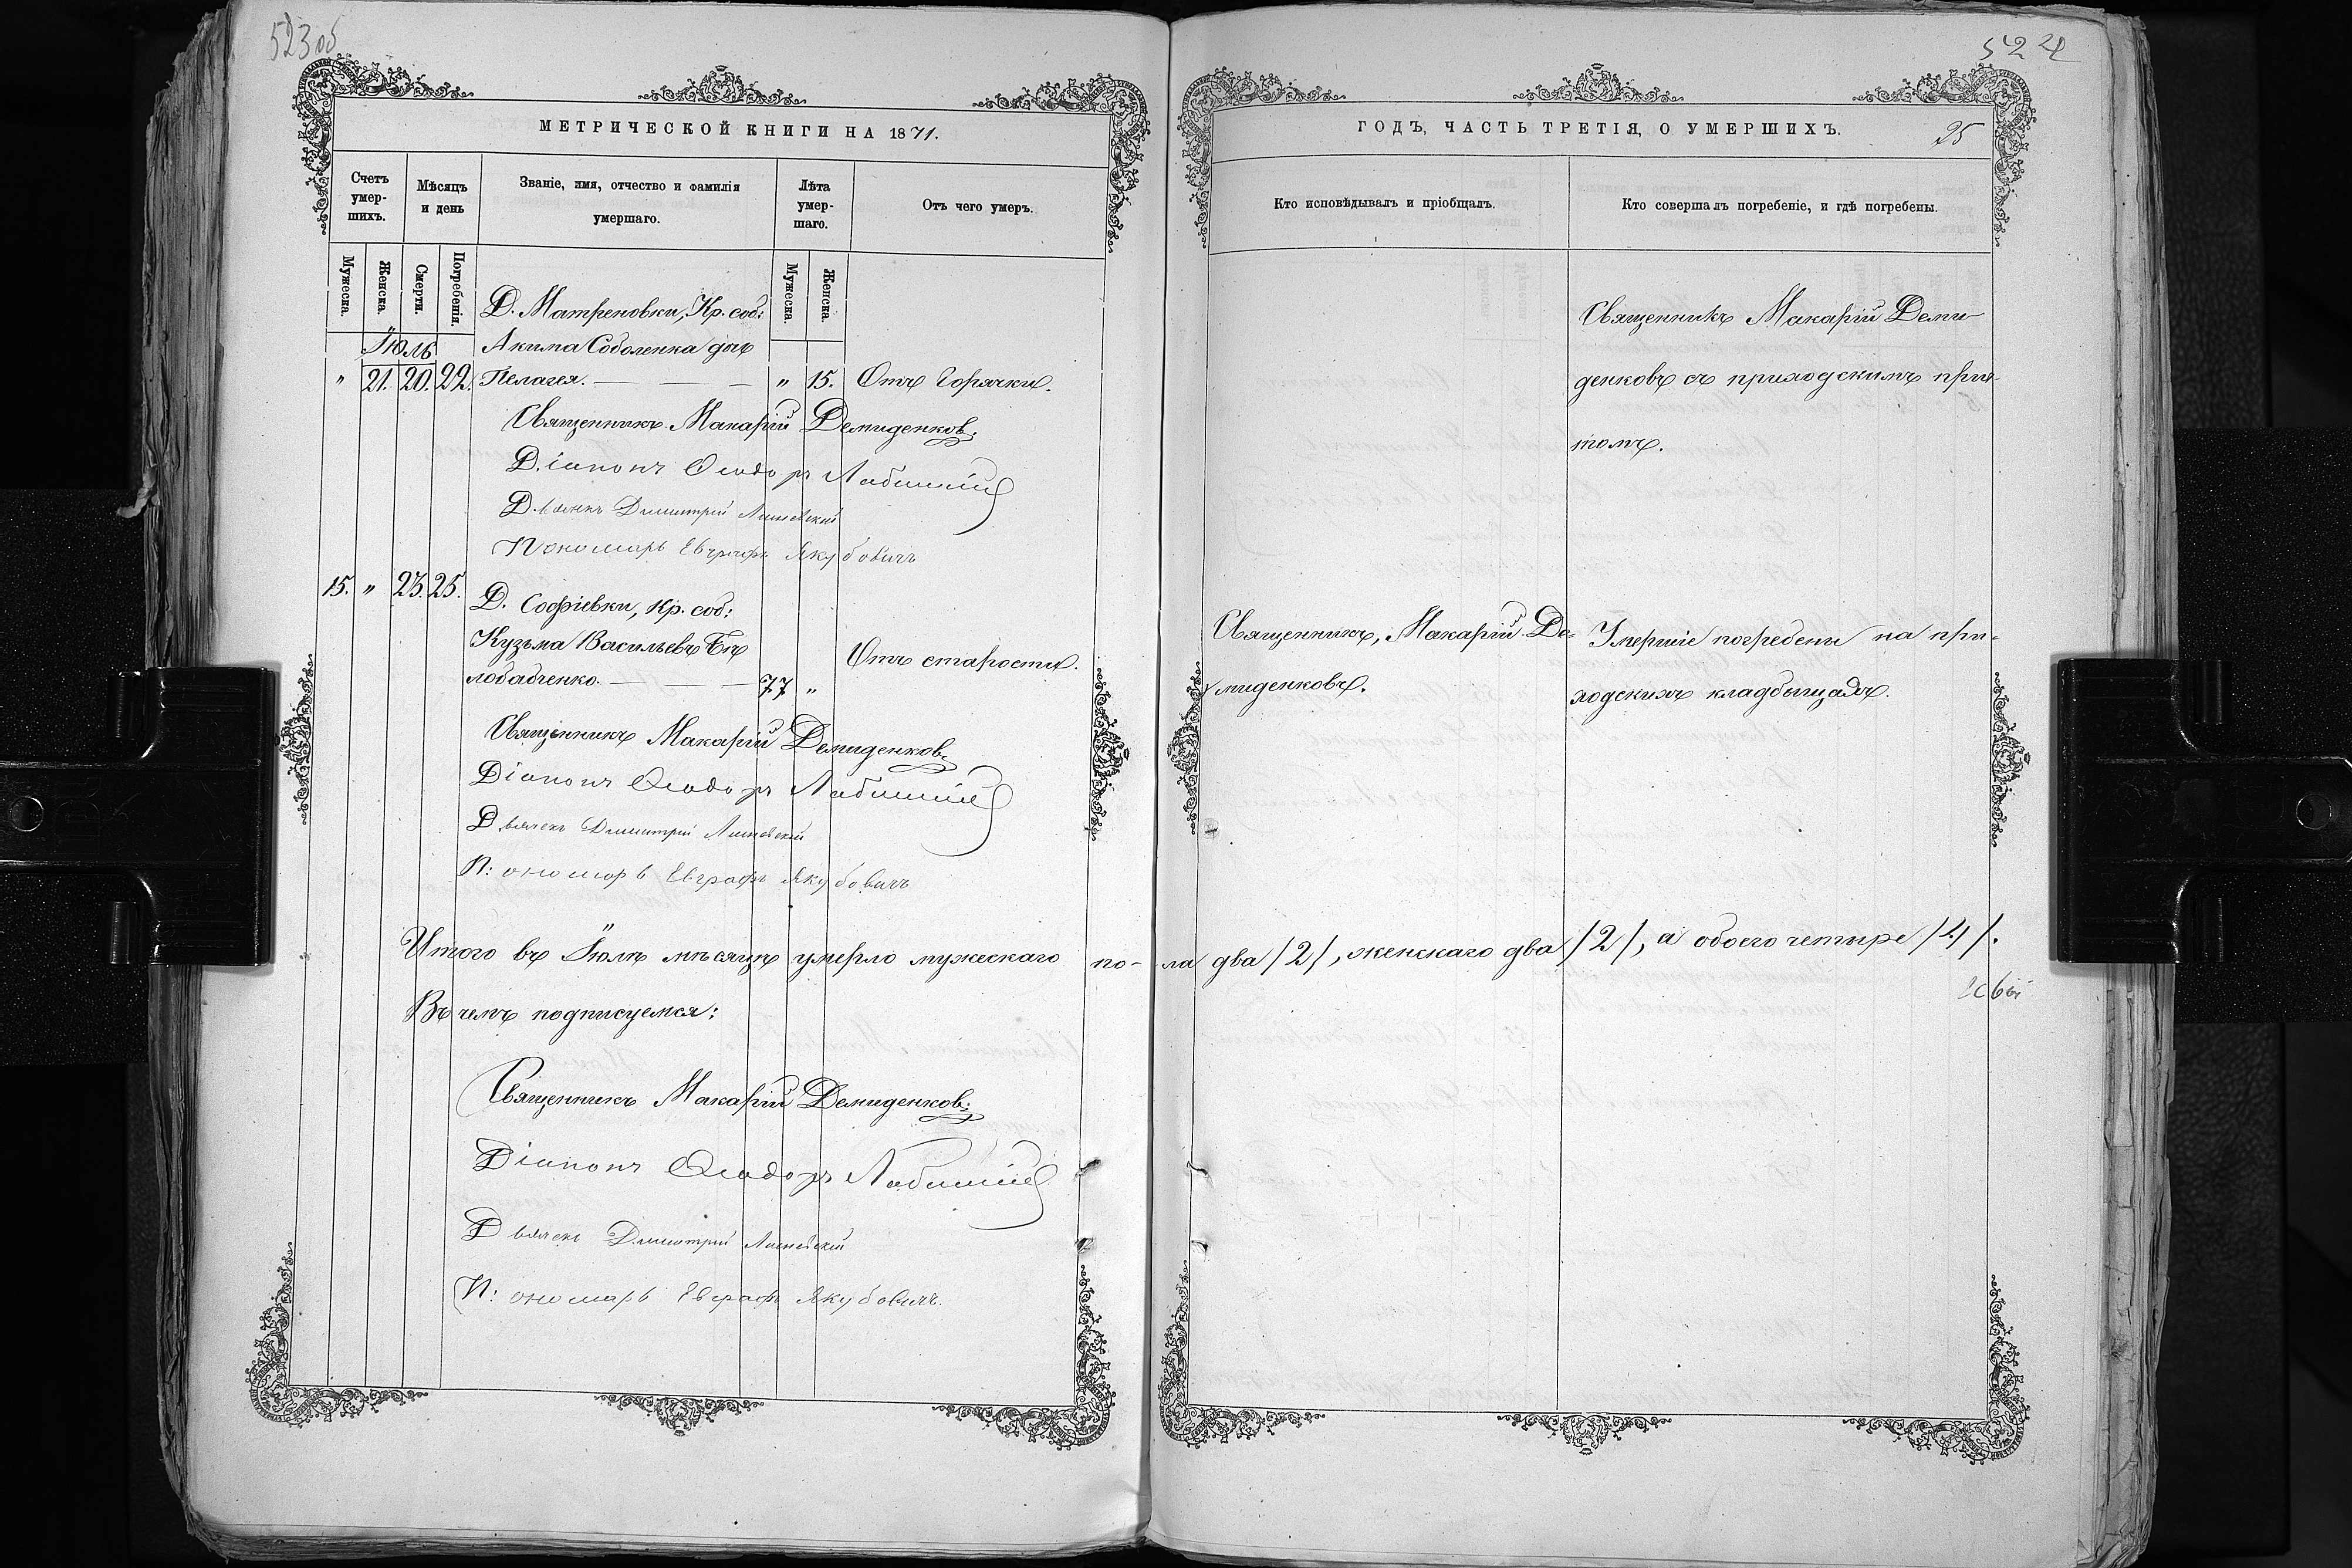 523 об
МЕТРИЧЕСКОЙ КНИГИ НА 1871.
Счетъ умер-шихъ.
Мѣсяцъ и день
Званіе, имя, отчество и фамилія умершаго.
Лѣта умер-шаго.
Отъ чего умеръ.
Мужеска.
Женска.
Смерти.
Погребенія.
Мужеска.
Женска.
Д. Матреновки, Кр. соб:
Іюль
Акима Соболенка дочь
" 21. 20. 22. Пелагея. — — — " 15. Отъ Горячки.
Священникъ Макарій Демиденков:
Діаконъ Ѳеодоръ
Дьячекъ Димитрій
Пономарь Евграфъ Якубовичъ
15. " 23. 25. Д. Софіевки, Кр. соб:
Кузьма Васильевъ Бѣ
лобабченко. — — — 77 " Отъ старости.
Священникъ Макарій Демиденков:
Діаконъ Ѳеодоръ
Дьячекъ Димитрій
П: ономарь Евграфъ Якубовичъ
Итого въ Іюлѣ мѣсяцѣ умерло мужескаго по-
Въ чемъ подписуемся:
Священникъ Макарій Демиденков:
Діаконъ Ѳеодоръ
Дьячекъ Димитрій
П: ономарь Евграфъ Якубовичъ.
524
ГОДЪ, ЧАСТЬ ТРЕТІЯ, О УМЕРШИХЪ.
25
Кто исповѣдывалъ и пріобщалъ.
Кто совершалъ погребеніе, и гдѣ погребены.
Священникъ Макарій Деми-
денковъ съ приходскимъ при-
томъ.
Священникъ, Макарій Де-
миденковъ.
Умершіе погребены на при-
ходскихъ кладбищахъ.
ла два /2/, женскаго два /2/, а обоего четыре /4/.